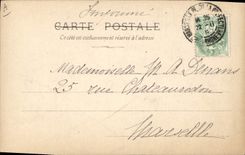 Imprimé
CARTE POSTALE
Ce côté est exclusivement réservé à l'adresse
Mademoiselle M. A. Dinans
25 rue Chateauredon
Marseille